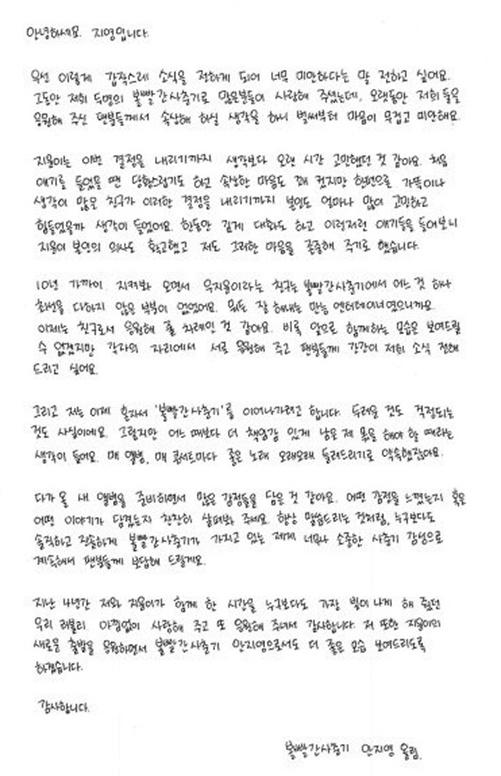 안녕하세요. 지영입니다.
우선 이렇게 갑작스레 소식을 전하게 되어 너무 미안하다는 말 전하고 싶어요.
그동안 저희 두명의 볼빨간사춘기로 많은분들이 사랑해 주셨는데, 오랫동안 저희 둘을
응원해 주신 팬분들께서 속상해 하실 생각을 하니 벌써부터 마음이 무겁고 미안해요.
지윤이는 이번 결정을 내리기까지 생각보다 오랜 시간 고민했던 것 같아요. 처음
얘기를 들었을 땐 당황스럽기도 하고 속상한 마음도 꽤 컸지만 한편으로 가뜩이나
생각이 많은 친구가 이러한 결정을 내리기까지 본인도 얼마나 많이 고민하고
힘들었을까 생각이 들었어요. 한동안 깊게 대화도 하고 이런저런 얘기들을 들어보니
지윤이 본인의 의사도 확고했고 저도 그러한 마음을 존중해 주기로 했습니다.
10년 가까이 지켜봐 오면서 우지윤이라는 친구는 볼빨간사춘기에서 어느 것 하나
최선을 다하지 않은 부분이 없었어요. 뭐든 잘 해내는 만능 엔터테이너였으니까요.
이제는 친구로서 응원해 줄 차례인 것 같아요. 비록 앞으로 함께하는 모습은 보여드릴
수 없겠지만 각자의 자리에서 서로 응원해 주고 팬분들께 간간이 저희 소식 전해
드리고 싶어요.
그리고 저는 이제 혼자서 '볼빨간사춘기'를 이어나가려고 합니다. 두려운 것도 걱정되는
것도 사실이에요. 그렇지만 어느 때보다 더 책임감 있게 남은 제 몫을 해야 할 때라는
생각이 들어요. 매 앨범, 매 콘서트마다 좋은 노래 오래오래 들려드리기로 약속했잖아요.
다가올 새 앨범을 준비하면서 많은 감정들을 담은 것 같아요. 어떤 감정을 느꼈는지 혹은
어떤 이야기가 담겼는지 찬찬히 살펴봐 주세요. 항상 말씀드리는 것처럼, 누구보다도
솔직하고 진솔하게 볼빨간사춘기가 가지고 있는 제게 너무나 소중한 사춘기 감성으로
계속해서 팬분들께 보답해 드릴게요.
지난 4년간 저와 지윤이가 함께 한 시간을 누구보다도 가장 빛이나게 해 줬던
우리 러볼리 아낌없이 사랑해 주고 또 응원해 주셔서 감사합니다. 저 또한 지윤이의
새로운 출발을 응원하면서 볼빨간사춘기 안지영으로서도 더 좋은 모습 보여드리도록
하겠습니다.
감사합니다.
볼빨간사춘기 안지영 올림.